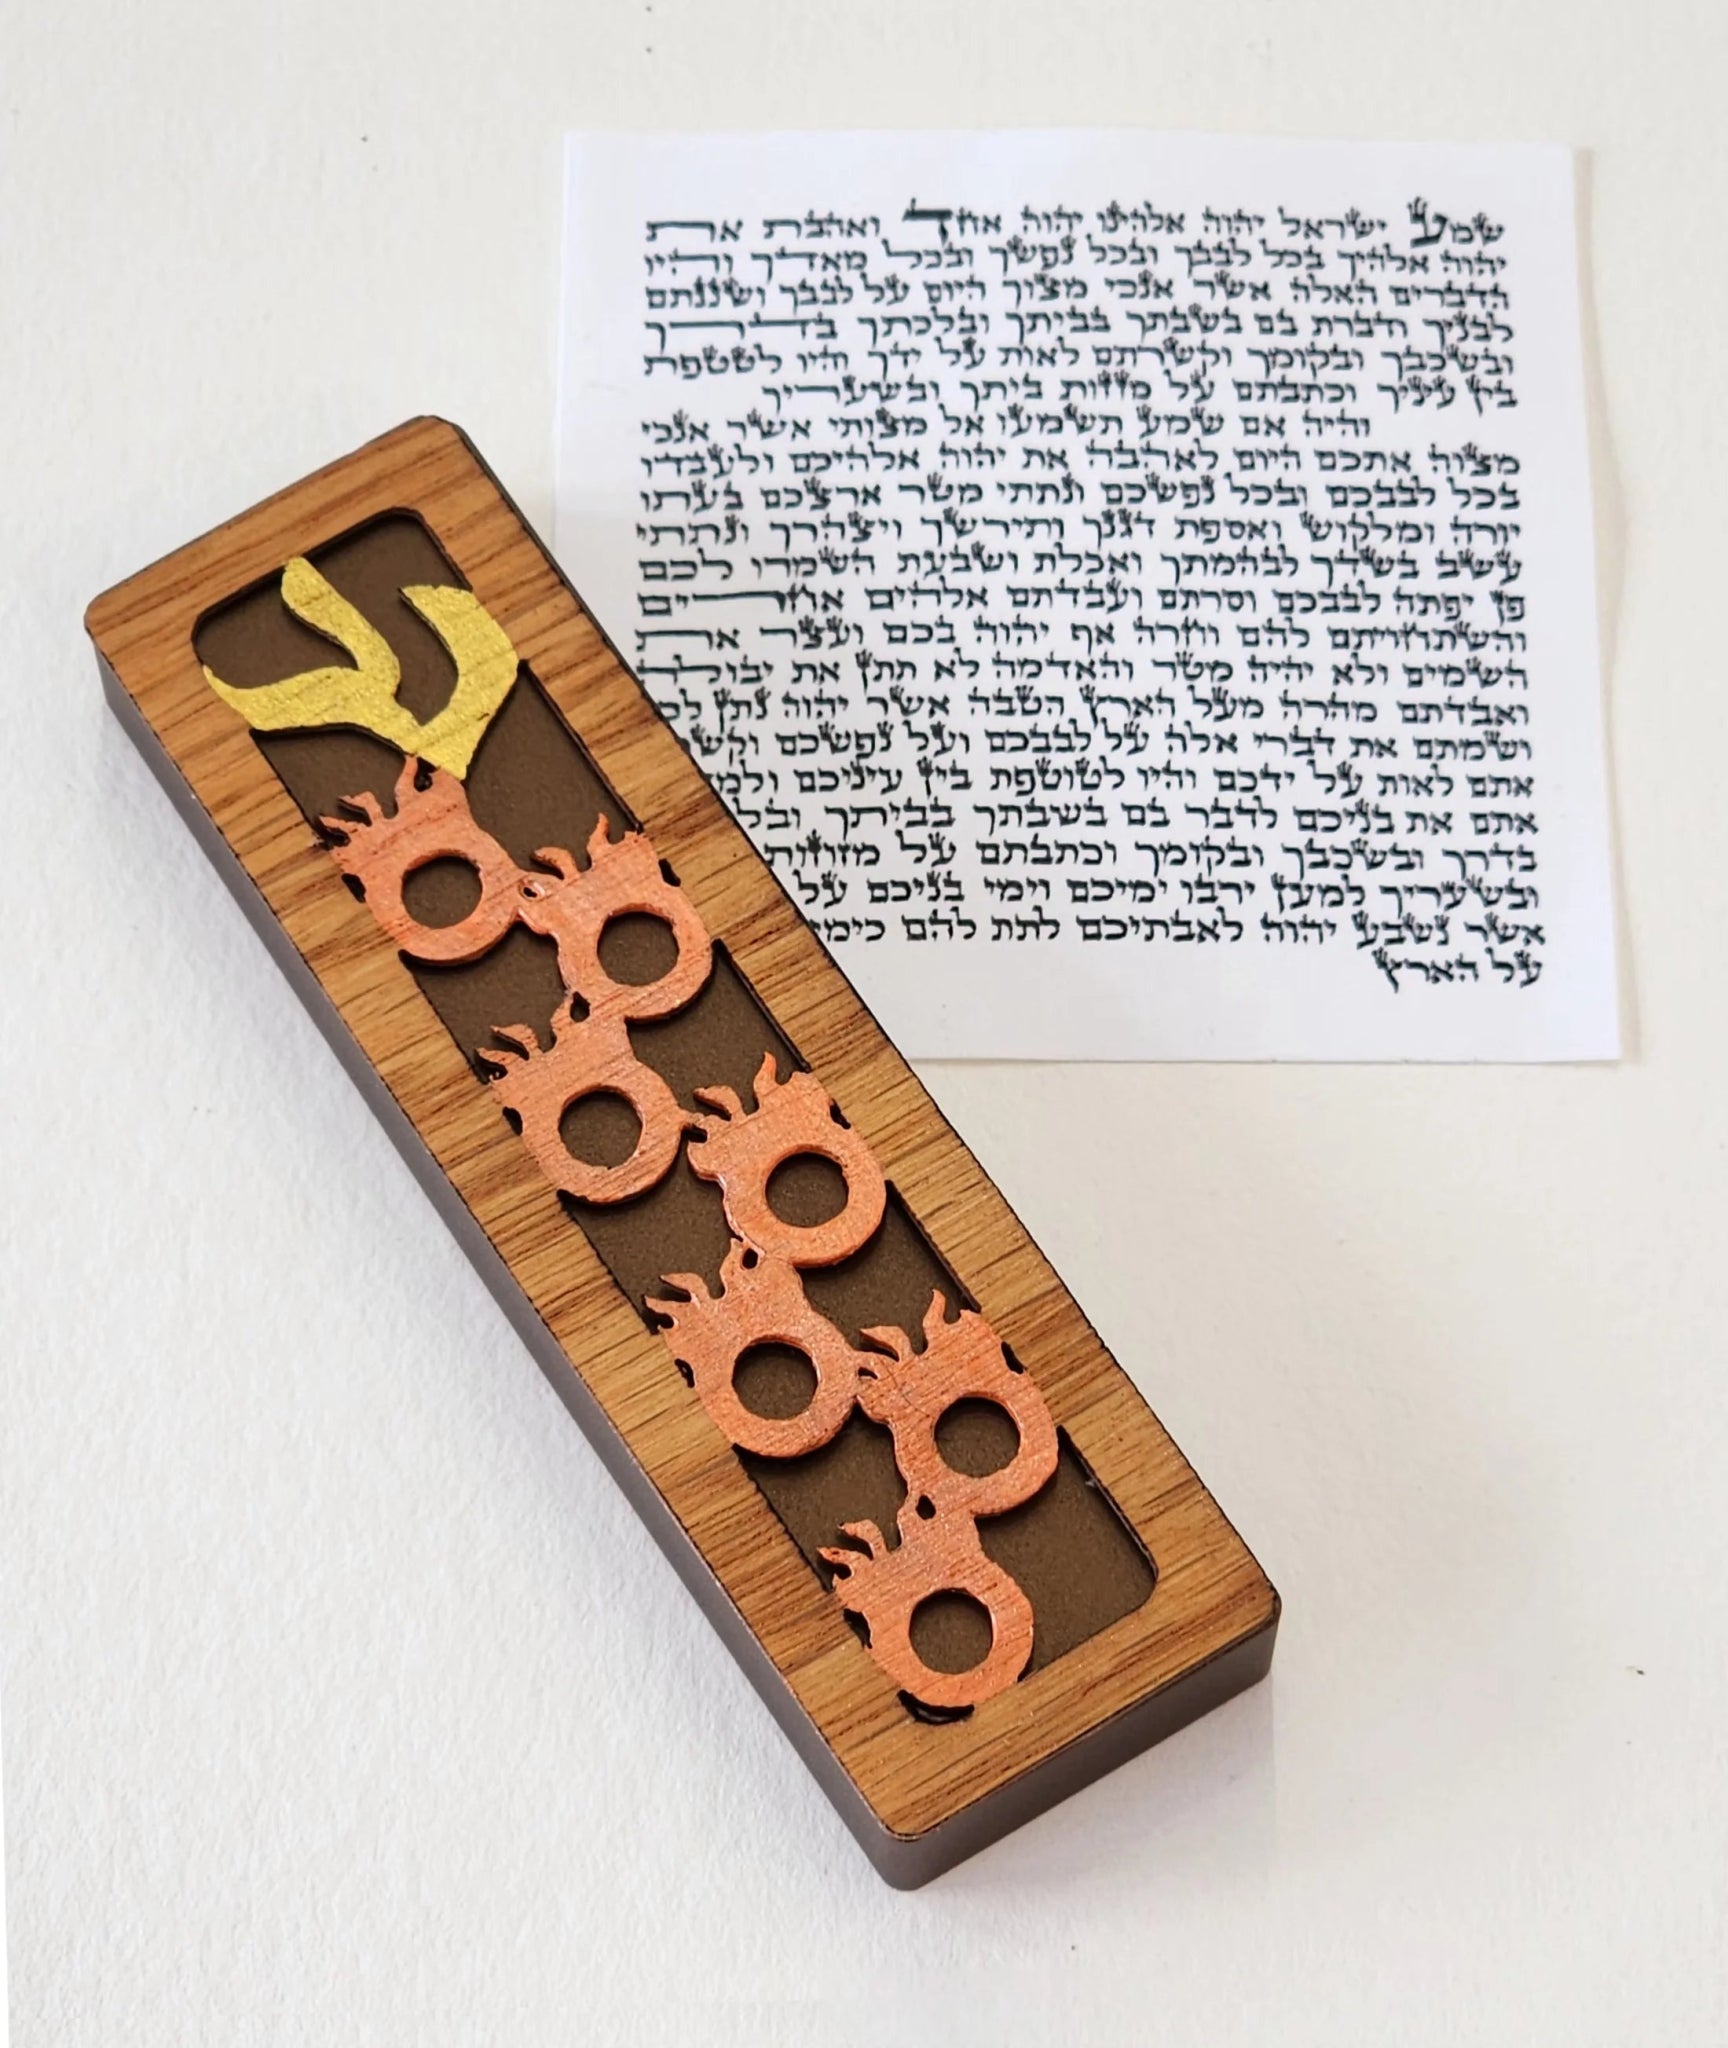 ש
שמע ישראל יהוה אלהינו יהוה אחד ואהבת את
יהוה אלהיך בכל לבבך ובכל נפשך ובכל מאדך והיו
הדברים האלה אשר אנכי מצוך היום על לבבך ושננתם
לבניך ודברת בם בשבתך בביתך ובלכתך בדרך
ובשכבך ובקומך וקשרתם לאות על ידך והיו לטטפת
בין עיניך וכתבתם על מזזות ביתך ובשעריך
והיה אם שמע תשמעו אל מצותי אשר אנכי
מצוה אתכם היום לאהבה את יהוה אלהיכם ולעבדו
בכל לבבכם ובכל נפשכם ונתתי מטר ארצכם בעתו
יורה ומלקוש ואספת דגנך ותירשך ויצהרך ונתתי
עשב בשדך לבהמתך ואכלת ושבעת השמרו לכם
פן יפתה לבבכם וסרתם ועבדתם אלהים אחרים
והשתחויתם להם וחרה אף יהוה בכם ועצר את
השמים ולא יהיה מטר והאדמה לא תתן את יבולה
ואבדתם מהרה מעל הארץ הטבה אשר יהוה נתן
ושמתם את דברי אלה על לבבכם ועל נפשכם
אתם לאות על ידכם והיו לטוטפת בין עיניכם
אתם את בניכם לדבר בם בשבתך בביתך
בדרך ובשכבך ובקומך וכתבתם על מזוזות
ובשעריך למען ירבו ימיכם וימי בניכם על
אשר נשבע יהוה לאבתיכם לתת להם כימי
על הארץ